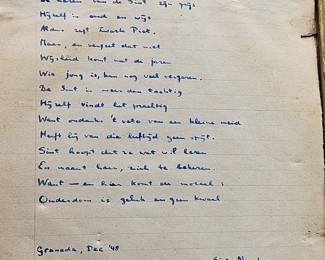 De haren van de Sint zijn grijs
Hijzelf is oud en wijs
Maar, zegt Zwarte Piet,
Maar, en vergeet dat niet
Wijsheid komt met de jaren
Wie jong is, kan nog veel vergaren.
De Sint is meer dan tachtig
Hijzelf vindt het prachtig
Want ondanks 't veto van een kleine meid
Heeft hij van die leeftijd geen spijt.
Sint hoopt dat ze wat wil leren
En maant haar, zich te bekeren.
Want — en hier komt de moraal:
Ouderdom is geluk en geen kwaal
Granada, Dec '48